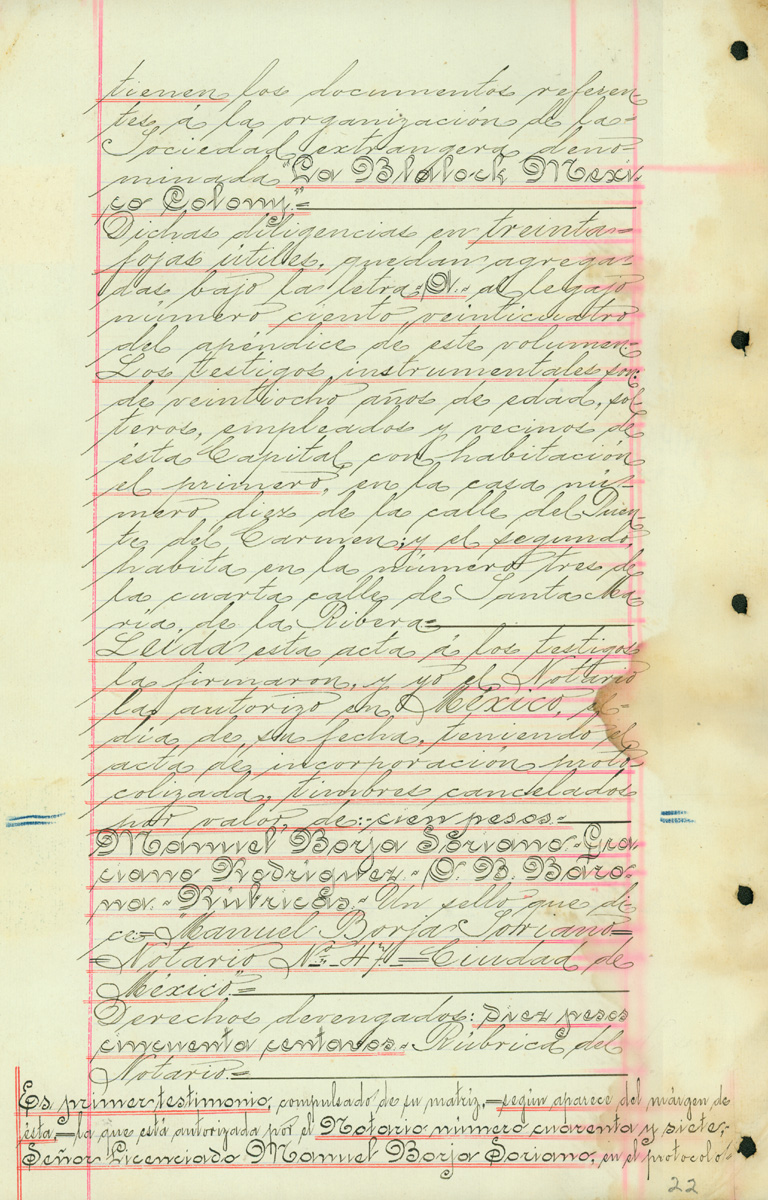 tienen los documentos referen-
tes á la organización de la=
Sociedad extrangera deno-
minada "La Blalock Mexi-
co Colony."=
Dichas diligencias en treinta=
fojas útiles, quedan agrega-
das bajo la letra al legajo
número ciento veinticuatro
del apéndice de este volumen.-
Los testigos instrumentales son:
de veintiocho años de edad, sol-
teros, empleados y vecinos de
ésta Capital con habitación
el primero, en la casa nú-
mero diez de la calle del Puen-
te del Carmen; y el segundo
habita en la número tres de
la cuarta calle de Santa Ma-
ría de la Ribera=
Leída esta acta á los testigos
la firmaron, y yó el Notario
la autorizo en México, el=
día de su fecha, teniendo el
acta de incorporación proto-
colizada, timbres cancelados
por valor de:-cien pesos-
Manuel Borja Soriano.-Gra-
ciano Rodriguez.- O. B. Baro-
na.- Rúbricas.- Un sello que di-
ce=Manuel Borja Soriano=
=Notario Nº 47=Ciudad de
México"=
Derechos devengados: diez pesos
cincuenta centavos.- Rúbrica del
Notario.=
Es primer testimonio, compulsado de su matriz,=según aparece del márgen de
ésta,=la que está autorizada por el Notario número cuarenta y siete,
Señor Licenciado Manuel Borja Soriano, en el protocolo
22